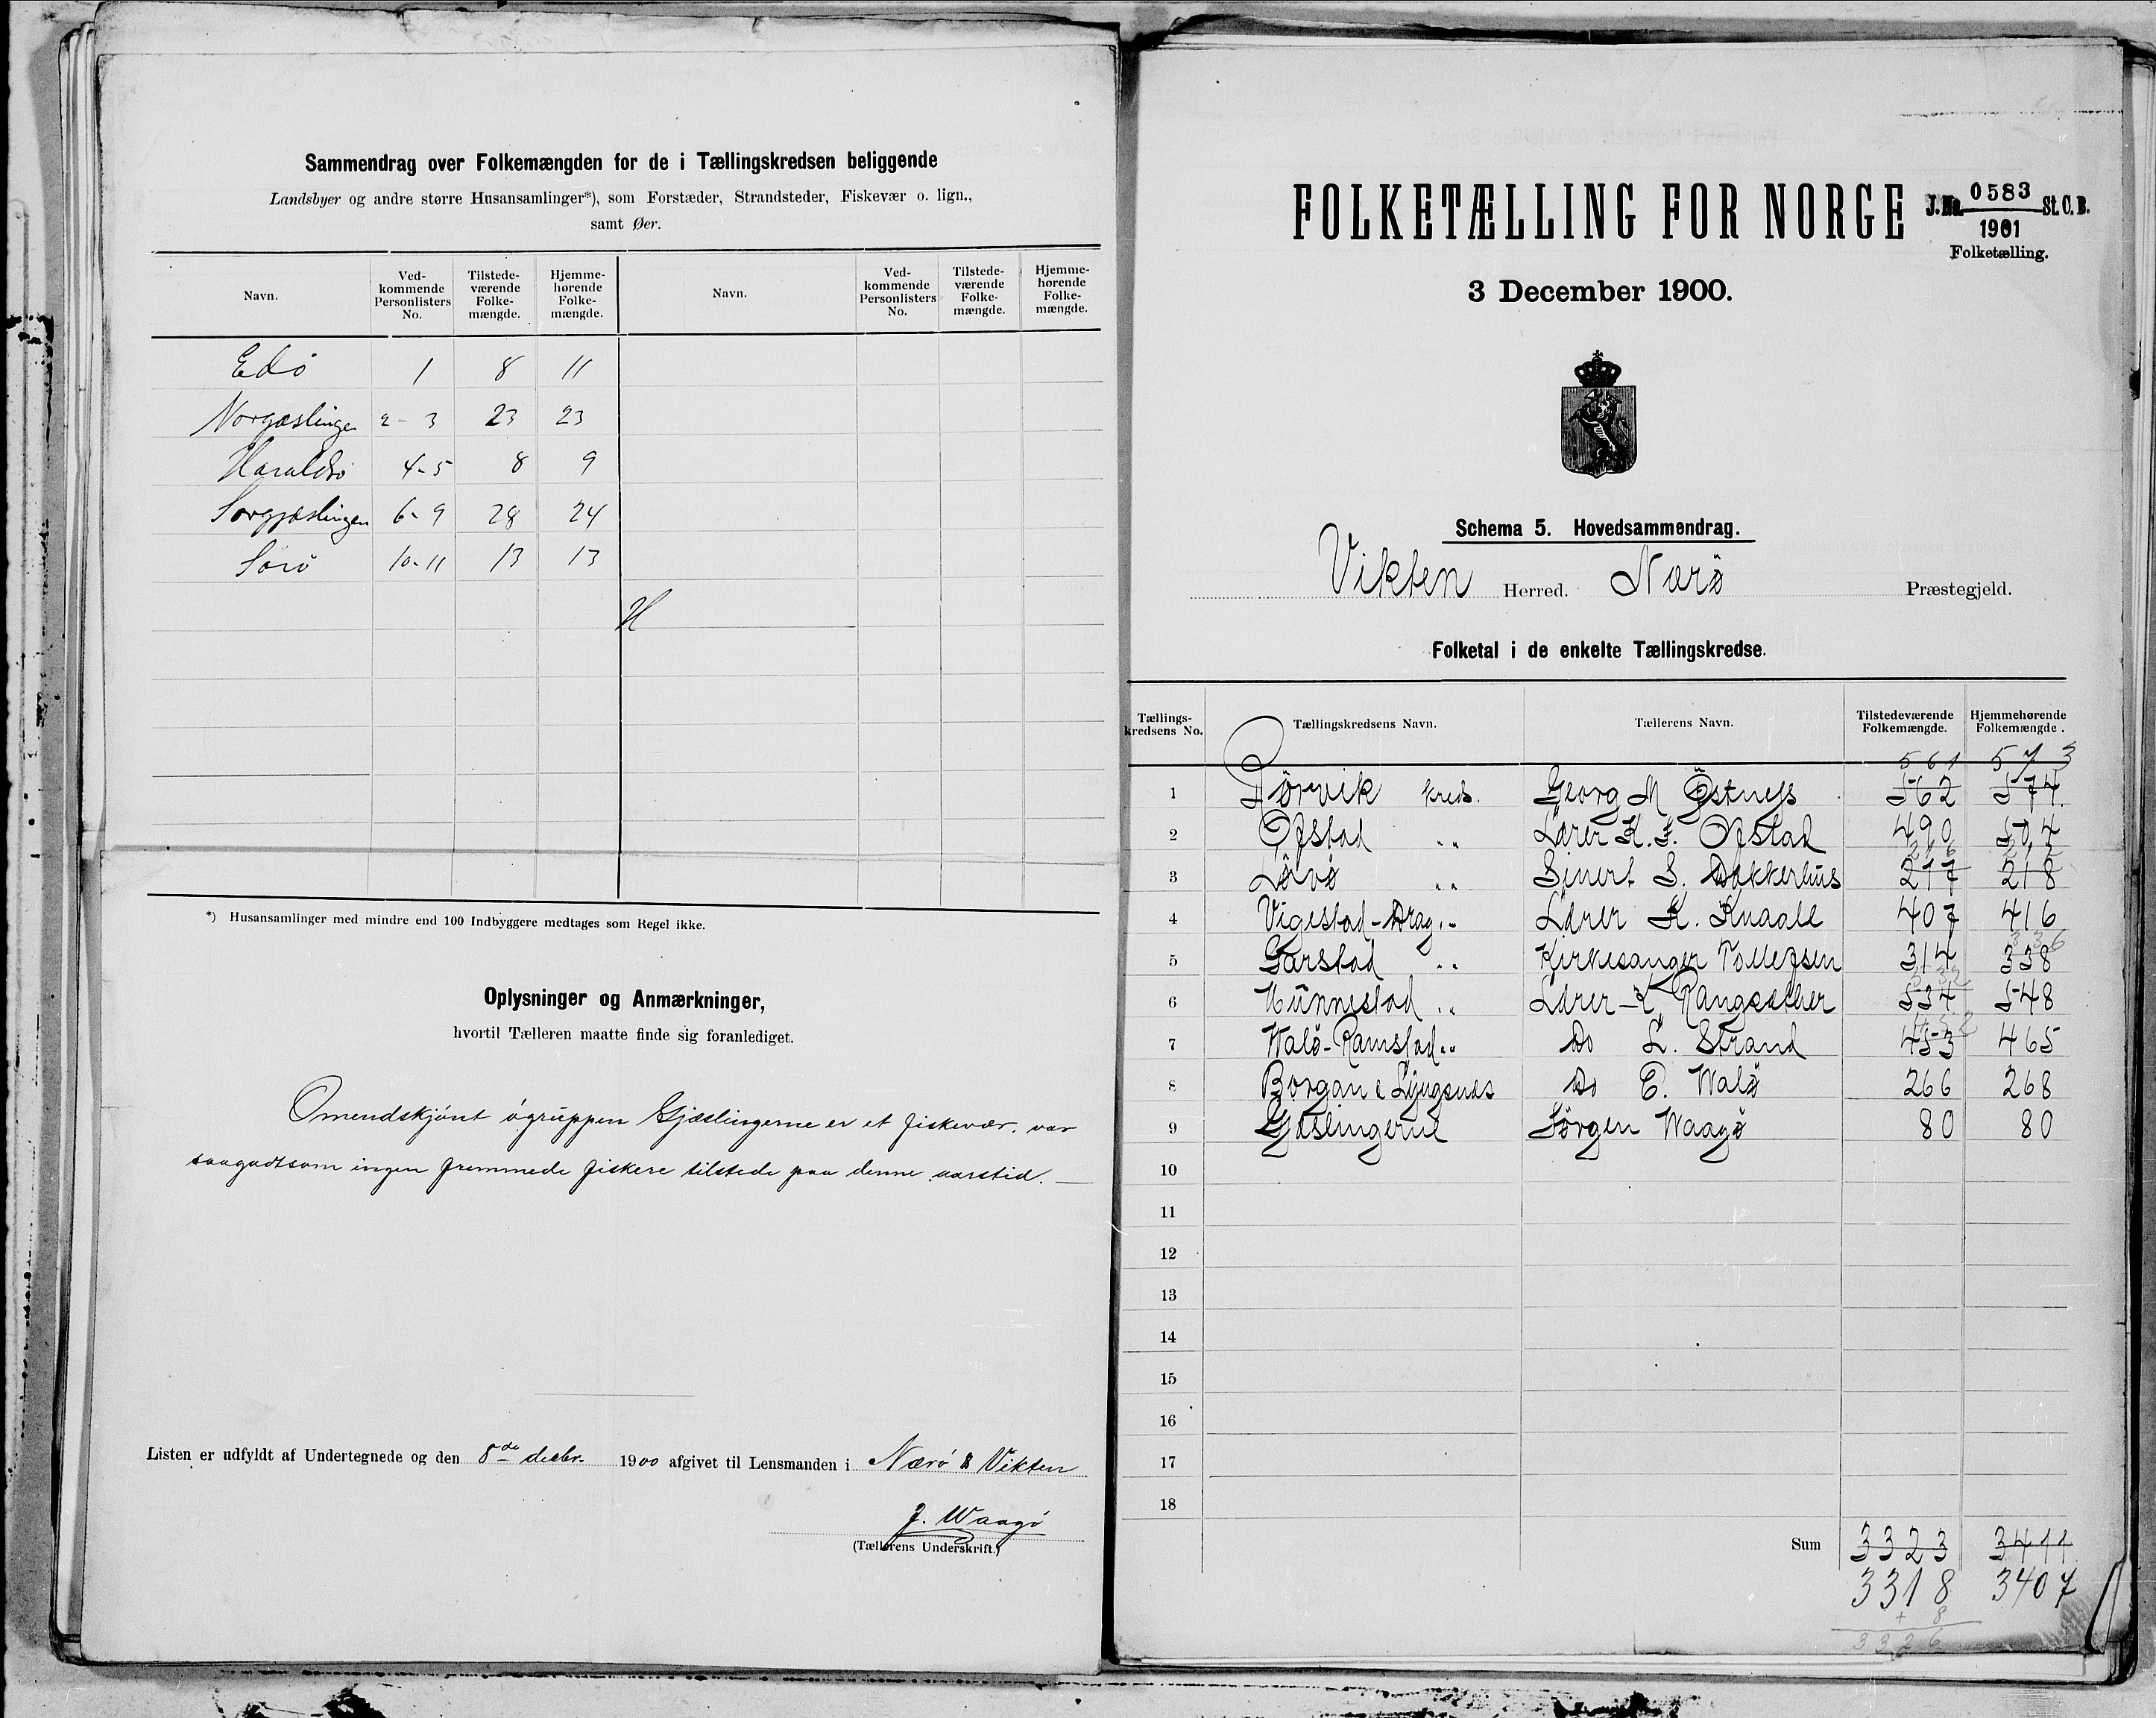 Sammendrag over Folkemængden for de i Tællingskredsen beliggende
Landsbyer og andre større Husansamlinger*), som Forstæder, Strandsteder, Fiskevær o. lign.,
samt Øer.
Navn. Ved-kommende Personlisters No. Tilstede-værende Folke-mængde. Hjemme-hørende Folke-mængde. Navn. Ved-kommende Personlisters No. Tilstede-værende Folke-mængde. Hjemme-hørende Folke-mængde.
Edø 1 8 11
Norgæslingen 2-3 23 23
Haraldsø 4-5 8 9
Sørgjæslingen 6-9 28 24
Sörö 10-11 13 13
*) Husansamlinger med mindre end 100 Indbyggere medtages som Regel ikke.
Oplysninger og Anmærkninger,
hvortil Tælleren maatte finde sig foranlediget.
Omendskjönt ögruppen Gjæslingerne er et fiskevær, var
saagodtsom ingen fremmede fiskere tilstede paa denne aarstid. —
Listen er udfyldt af Undertegnede og den 8de decbr. 1900 afgivet til Lensmanden i Nærö & Vikten
J. Waagö
(Tællerens Underskrift.)
FOLKETÆLLING FOR NORGE
J.No. 0583 St.C.B.
1901
Folketælling.
3 December 1900.
Schema 5. Hovedsammendrag.
Vikten Herred. Nærö Præstegjeld.
Folketal i de enkelte Tællingskredse.
Tællings-kredsens No. Tællingskredsens Navn. Tællerens Navn. Tilstedeværende Folkemængde. Hjemmehørende Folkemængde.
561 573
1 Rörvik Kreds. Georg M Östness 562 574
2 Ofstad „ Lærer K. J. Ofstad 490 504
216 212
3 Lövö „ Sivert S. Dakkerhus 217 218
4 Vigestad-Drag „ Lærer K. Knaale 407 416
336
5 Garstad „ Kirkesanger Tollefsen 314 338
532
6 Hunnestad „ Lærer K. Rangsæther 534 548
452
7 Walö-Ramstad „ Do L. Strand 453 465
8 Borgan & Lyngsnes Do E. Walö 266 268
9 Gæslingerne Jörgen Waagö 80 80
10
11
12
13
14
15
16
17
18
Sum 3323 3411
3318 3407
+ 8
3326